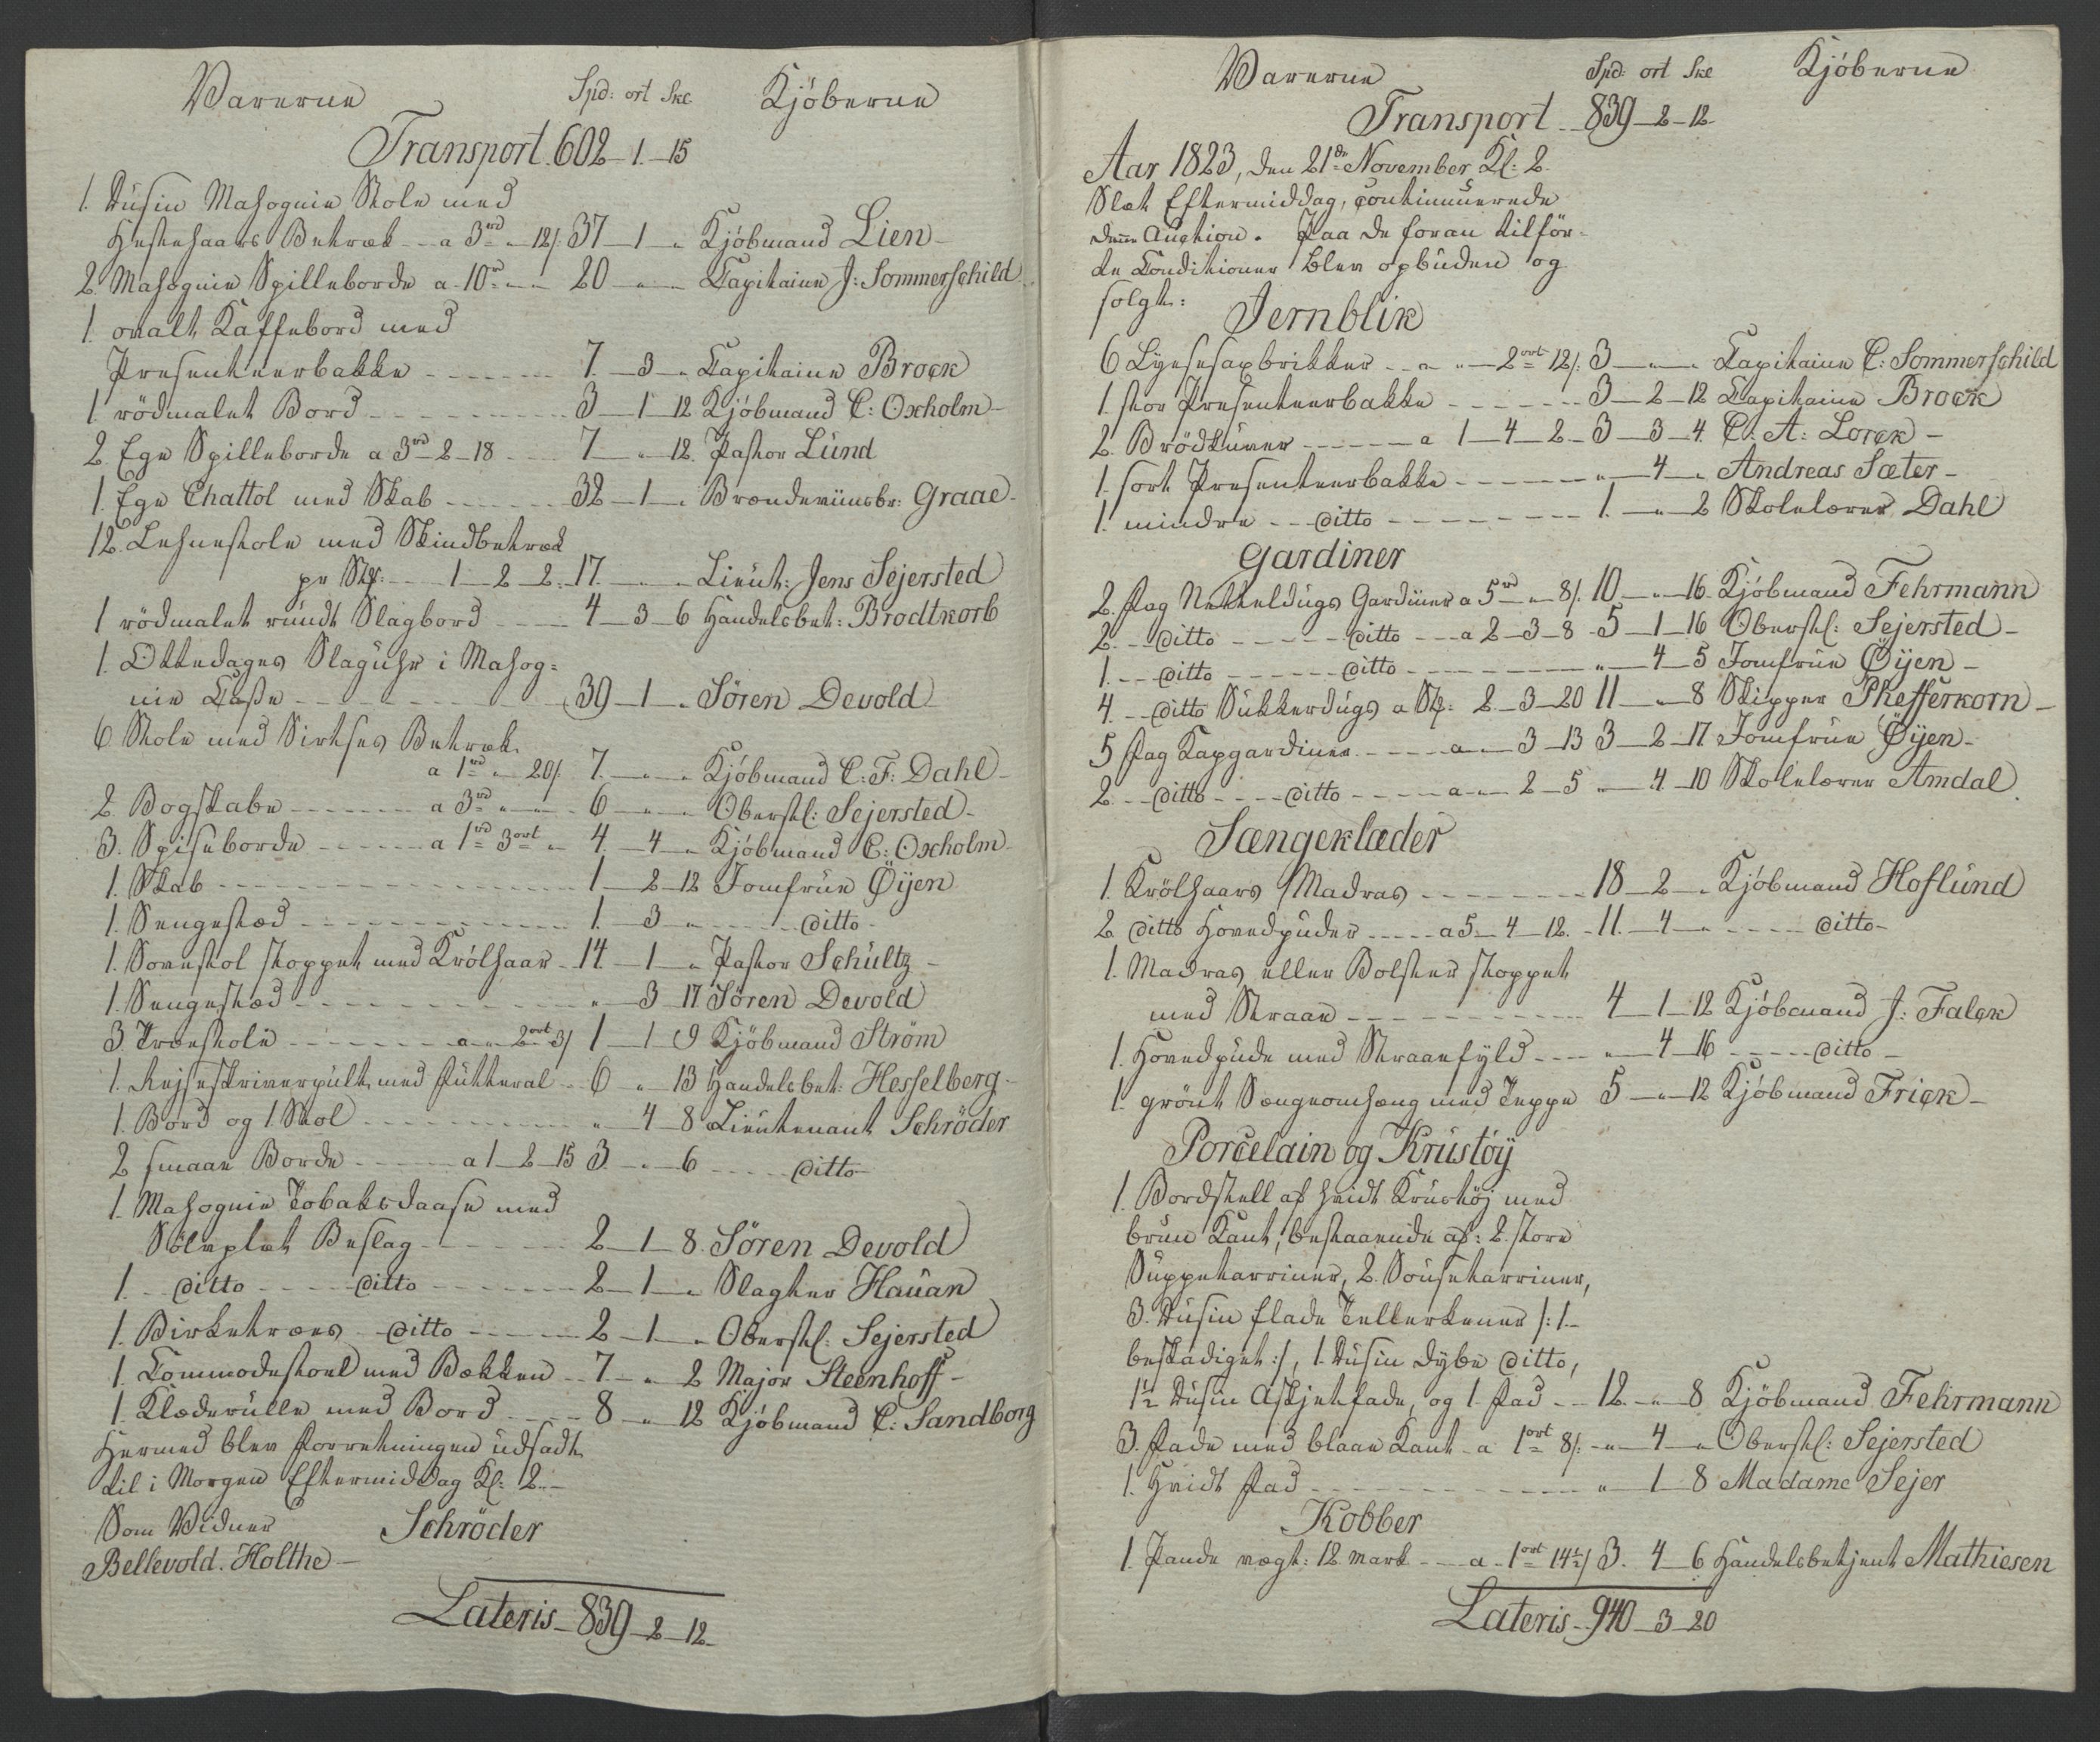 Varerne Spd: ort Sk Kjöberne
Transport. 602 - 1 - 15
1. Dusin Mahognie Stole med
Hestehaars Betræk - - a 3 rd " 12/: 37 - 1 - " Kjöbmand Lien -
2. Mahognie Spilleborde a - 10 rd " - " 20 - " - " Capitaine J: Sommerschild
1. ovalt Kaffebord med
Presenteerbakke - - - - - - 7. - 3 - " Capitaine Brock
1. rödmalet Bord - - - - - - - - - 3 - 1 - 12 Kjöbmand C: Oxholm -
2. Ege Spilleborde a 3 rd - 2 - 18 - - - 7 - " - 12. Pastor Lund
1. Ege Chattol med Skab - - - - - - 32 - 1 - " Brændeviinsbr: Graae -
12. Lehnestole med Skindbetræk
pr Stk: - - - 1 - 2 - 2: - 17. - " - " Lieut: Jens Sejersted
1 rödmalet rundt Slagbord - - - - 4 - 3 - 6 Handelsbet: Brodtkorb
1. Ottedages Slaguhr i Mahog=
nie Casse - - - - - - - - - - - 39 - 1 - " Sören Devold
6 Stole med Sirtses Betræk
a 1 rd - " - 20/: 7. - " - " Kjöbmand C: F: Dahl -
2. Bogskabe - - - - - - a 3 rd - " - " - 6 - " - " Oberstl: Sejersted -
3. Spiseborde - - - - - a 1 rd 3 ort " 4. - 4 - " Kjöbmand C: Oxholm -
1. Skab - - - - - - - - - - - - - - - - 1 - 2 - 12 Jomfrue Öÿen
1. Sengested - - - - - - - - - - - - 1. - 3 - " - - - - ditto -
1. Sovestol stoppet med Krölhaar - 14. - 1 - " Pastor Schultz -
1. Sengested - - - - - - - - - - - - " - 3 - 17 Sören Devold
3. Træstole - - - - - - - a - " - 2 ort 3/ 1 - 1 - 9 Kjöbmand Ström
1. Rejseskriverpult med Futteral - - 6 - " - 13 Handelsbet: Hesselberg -
1. Bord og 1 Stol - - - - - - - - - - - " - 4 - 8 Lieutenant Schröder
2 smaae Borde - - - - - a 1 - 2 - 15 3. - " - 6 - - - - ditto -
1. Mahognie Tobaksdaase med
Sölvplet Beslag - - - - - - 2 - 1 - 8. Sören Devold
1. - - ditto - - - - ditto - - - - - 2 - 1 - " Slagter Hauan
1. Birketræes - ditto - - - - - 2 - 1 - " Oberstl: Sejersted
1. Commodestoel med Bækken - - 7. - " - 2 Major Steenhoff -
1. Klæderulle med Bord - - - - 8 - " - 12 Kjöbmand C: Sandborg
Hermed blev Forretningen udsadt
til i Morgen Eftermiddag Kl: 2. -
Som Vidner Schröder
Bellevold. Holthe -
Lateris - 839 - 2 - 12 -
Varerne Spd: ort Sk Kjöberne
Transport - - 839 - 2 - 12 -
Aar 1823, den 21de November Kl: 2.
Slæt Eftermiddag, continuerede
denne Auction. Paa de foran tilför-
te Conditioner blev opbuden og
solgt:
Jernblik
6 Lysesaxbrikker - - a " - 2 ort 12/: 3 - " - " Capitaine C: Sommerschild
1. stor Presenteerbakke - - - - - - 3 - 2 - 12 Capitaine Brock
2. Brödkurve - - - - - a 1 - 4 - 2 - 3 - 3 - 4. C: A: Lorck -
1. sort Presenteerbakke - - - - - - " - 4 - " Andreas Sæter -
1. mindre - - - ditto - - - - - - - 1. - " - 2 Skolelærer Dahl
Gardiner
2. Fag Netteldugs Gardiner a 5 rd " 8/: 10 - " - 16 - Kjöbmand Fehrmann
2. - - ditto - - - - - ditto - - - a 2 - 3 - 8 - 5 - 1 - 16 Oberstl: Sejersted -
1. - - ditto - - - - - ditto - - - - - - - - " - 4 - 5 Jomfrue Öÿen -
4. - - ditto Sukkerdugs a Stk: 2 - 3 - 20 11 - " - 8 Skipper Phefferkorn -
5 Fag Kapgardiner - - - - - a - " - 3 - 13 3 - 2 - 17 Jomfrue Öÿen -
2. - - ditto - - - - ditto - - - - a - " - 2 - 5 " - 4 - 10 Skolelærer Amdal
Sængeklæder
1. Krölhaars Madras - - - - - - - - 18 - 2 - " Kjöbmand Hoflund
2 ditto Hovedpuder - - - - a 5 - 4 - 12. - 11. - 4 - " - - - - ditto -
1. Madras eller Bolster stoppet
med Straae - - - - - - - - - - - 4 - 1 - 12 Kjöbmand J: Falck
1. Hovedpude med Straaefyld - - - " - 4 - 16 - - - - ditto -
1. grönt Sængeomhæng med Teppe 5 - " - 12 Kjöbmand Frick -
Porcelain og Krustöÿ
1. Bordstell af hvidt Krustöj med
brun Kant, bestaaende af: 2. store
Suppeterriner, 2. Souseterriner,
3. Dusin flade Tellerkener /: 1. -
beskadiget :/, 1. Dusin dybe ditto,
1½ Dusin Askjetfade, og 1 Fad - - 12. - " - 8 Kjöbmand Fehrmann
3. Fade med blaae Kant - a 1 ort 8/: - " - 4 - " Oberstl: Sejersted
1. Hvidt Fad - - - - - - - - - - - " - 1 - 8 Madame Sejer
Kobber
1. Pande vægt: 12 mark - - - a - 1 ort 14½/ 3. 4 - 6 Handelsbetjent Mathiesen
Lateris - - 940 - 3 - 20